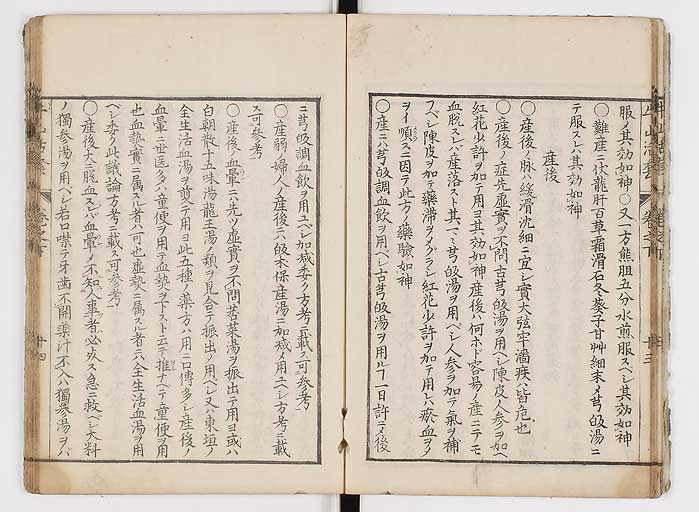 服ノ其効如神〇又一方熊胆五分水煎服スベシ其効如神
〇難産ニ伏龍肝百草霜滑石冬葵子甘艸細末メ芎皈湯ニ
テ服スレバ其効如神
産後
〇産後ノ脉ハ緩滑沈細ニ宜シ實大弦牢濇疾ハ皆危也
〇産後ノ症先虚實ヲ不問古芎皈湯ヲ用ベシ陳皮ノ参ヲ加ヘ
紅花少許ヲ加テ用ヨ其効如神産後ハ何ホド容易ノ産ニテモ
血脱スレバ産落スト其ヘ芎皈湯ヲ用ベシ人参ヲ加テ氣ヲ補
フベシ陳皮ヲ加テ藥滞ヲメグラシ紅花少許ヲ加テ用レバ瘀血ヲメ
ヲイ順スニ因テ此方ノ藥驗如神
〇産ニハ芎皈調血飲ヲ用ベシ古芎皈湯ヲ用ル丁一日許テ後
ニ芎皈調血飲ヲ用ユベシ加減委ク方考ニ載ス可参考
〇産弱キ婦人ハ産後ニ皈木保産湯ニ加减メ用ユベシ方考ニ載
ス可参考
〇産後ノ血暈ニハ先ツ虚實ヲ不問苦菜湯ヲ振出テ用ヨ或ハ
白朝散十五味湯龍王湯ノ類ヲ見合テ振出メ用ベシ又ハ東垣ノ
全生活血湯ヲ煎テ用ヨ此五種ノ藥方ハ用ニ口傳多シ産後ノ
血暈ニ世医多ハ童便ヲ用テ血熱ヲ下スト云テ推ナベテ童便ヲ用
也血熱實ニ属スル者ハ可也虚熱ニ属スル者ニハ全生活血湯ヲ用
ベシ委ク此議論方考ニ載ス可参考
〇産後大ニ脱血スレバ血暈メ不知人事者必死ス急ニ救ベシ大料
ノ獨参湯ヲ用ベシ若口噤テ牙歯不開藥汁不入ハ獨参湯ヲバ